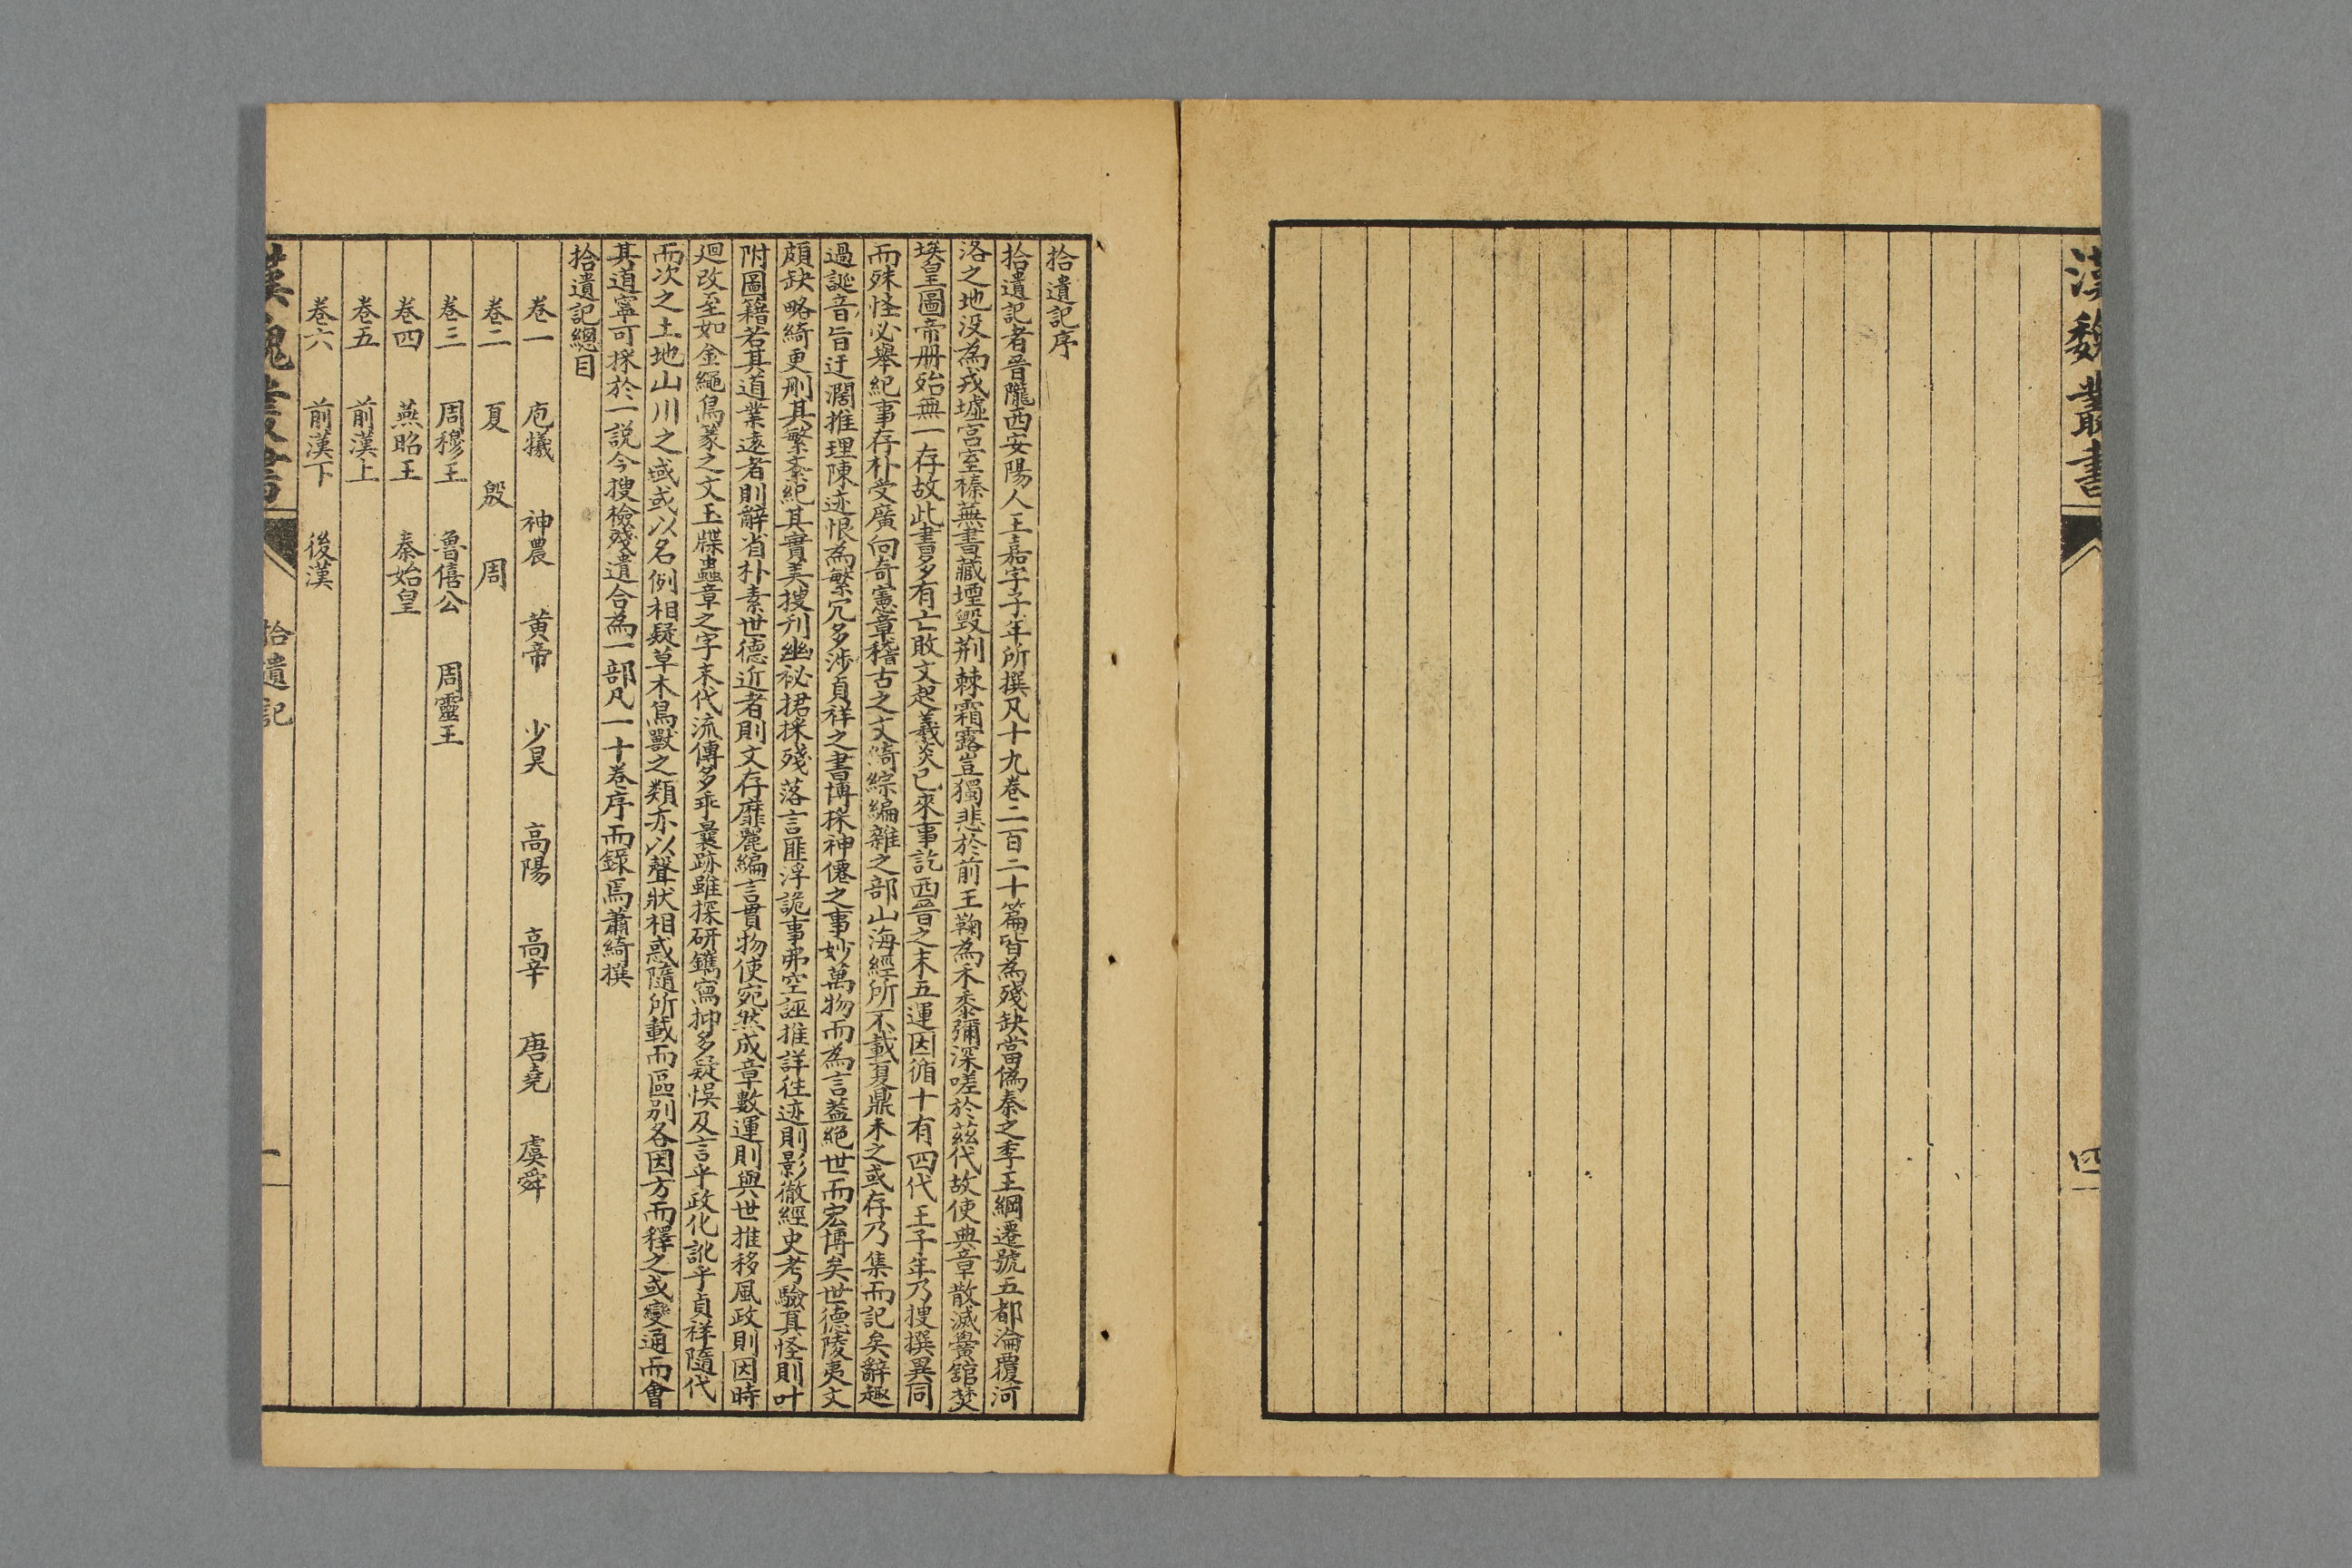 漢魏叢書
四
拾遺記序
拾遺記者晉隴西安陽人王嘉字子年所撰凡十九卷二百二十篇皆為殘缺當僞秦之季王綱遷號五都淪覆河
洛之地没為戎墟宮室榛蕪書藏堙毀荆棘霜露豈獨悲於前王鞠為禾黍彌深嗟於茲代故使典章散滅黌舘焚
埃皇圖帝册殆無一存故此書多有亡敗文起羲炎已來事訖西晉之末五運因循十有四代王子年乃搜撰異同
而殊怪必舉紀事存朴受廣向奇憲章稽古之文綺綜編雜之部山海經所不載夏鼎未之或存乃集而記矣辭趣
過誕音旨迂濶推理陳迹恨為繁冗多涉貞祥之書博採神僊之事妙萬物而為言蓋絕世而宏博矣世德陵夷文
頗缺略綺更刪其繁紊紀其實美搜刋幽祕捃採殘落言匪浮詭事弗空誣推詳徃迹則影徹經史考驗真怪則叶
附圖籍若其道業遠者則辭省朴素世德近者則文存靡麗編言貫物使宛然成章數運則與世推移風政則因時
迴改至如金繩鳥篆之文玉牒蟲章之字末代流傳多乖曩跡雖探研鐫寫抻多疑悞及言乎政化訛乎貞祥隨代
而次之土地山川之域或以名例相疑草木鳥獸之類亦以聲狀相惑隨所載而區別各因方而釋之或變通而會
其道寧可採於一説今搜檢殘遺合為一部凡一十卷序而錄焉蕭綺撰
拾遺記總目
卷一 庖犧 神農 黄帝 少昊 高陽 高辛 唐堯 虞舜
卷二 夏 殷 周
卷三 周穆王 魯僖公 周靈王
卷四 燕昭王 秦始皇
卷五 前漢上
卷六 前漢下 後漢
漢魏叢書 拾遺記 一